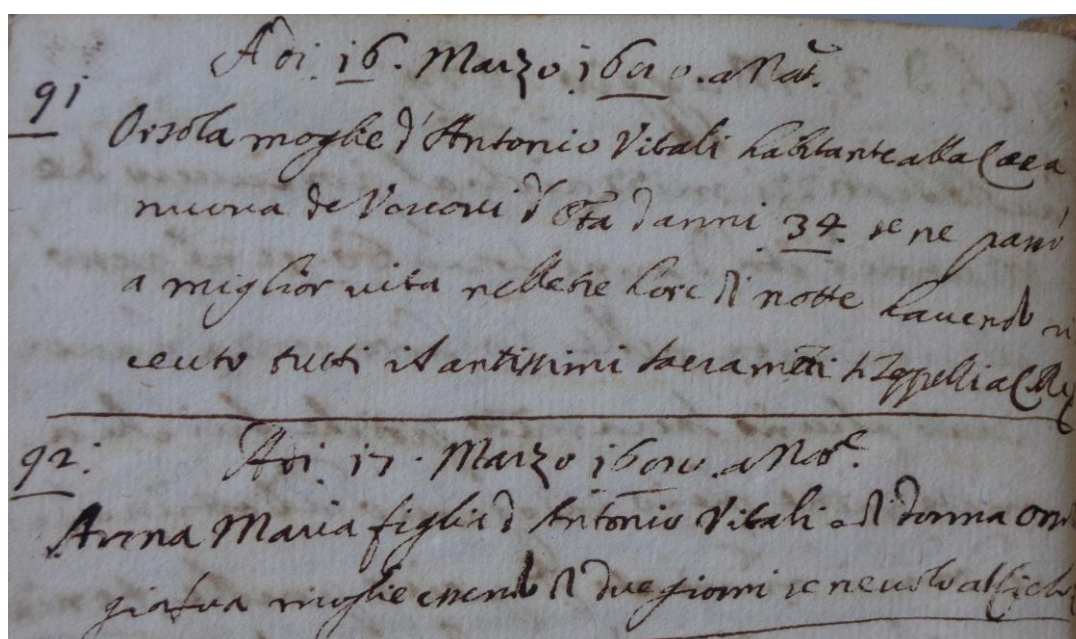 Adi. 16. Marzo. a Nat.e
91
Orsola moglie d' Antonio Vitali habitante alla Casa
nuova de d'Età d'anni 34. se ne passò
a miglior vita nelle tre hore di notte havendo ri
ceuto tutti i Santissimi Sacrameti
92. Adi 17. Marzo a Nat.e
Anna Maria figlia d' Antonio Vitali e di donna
moglie essendo di due giorni se ne volò al cielo